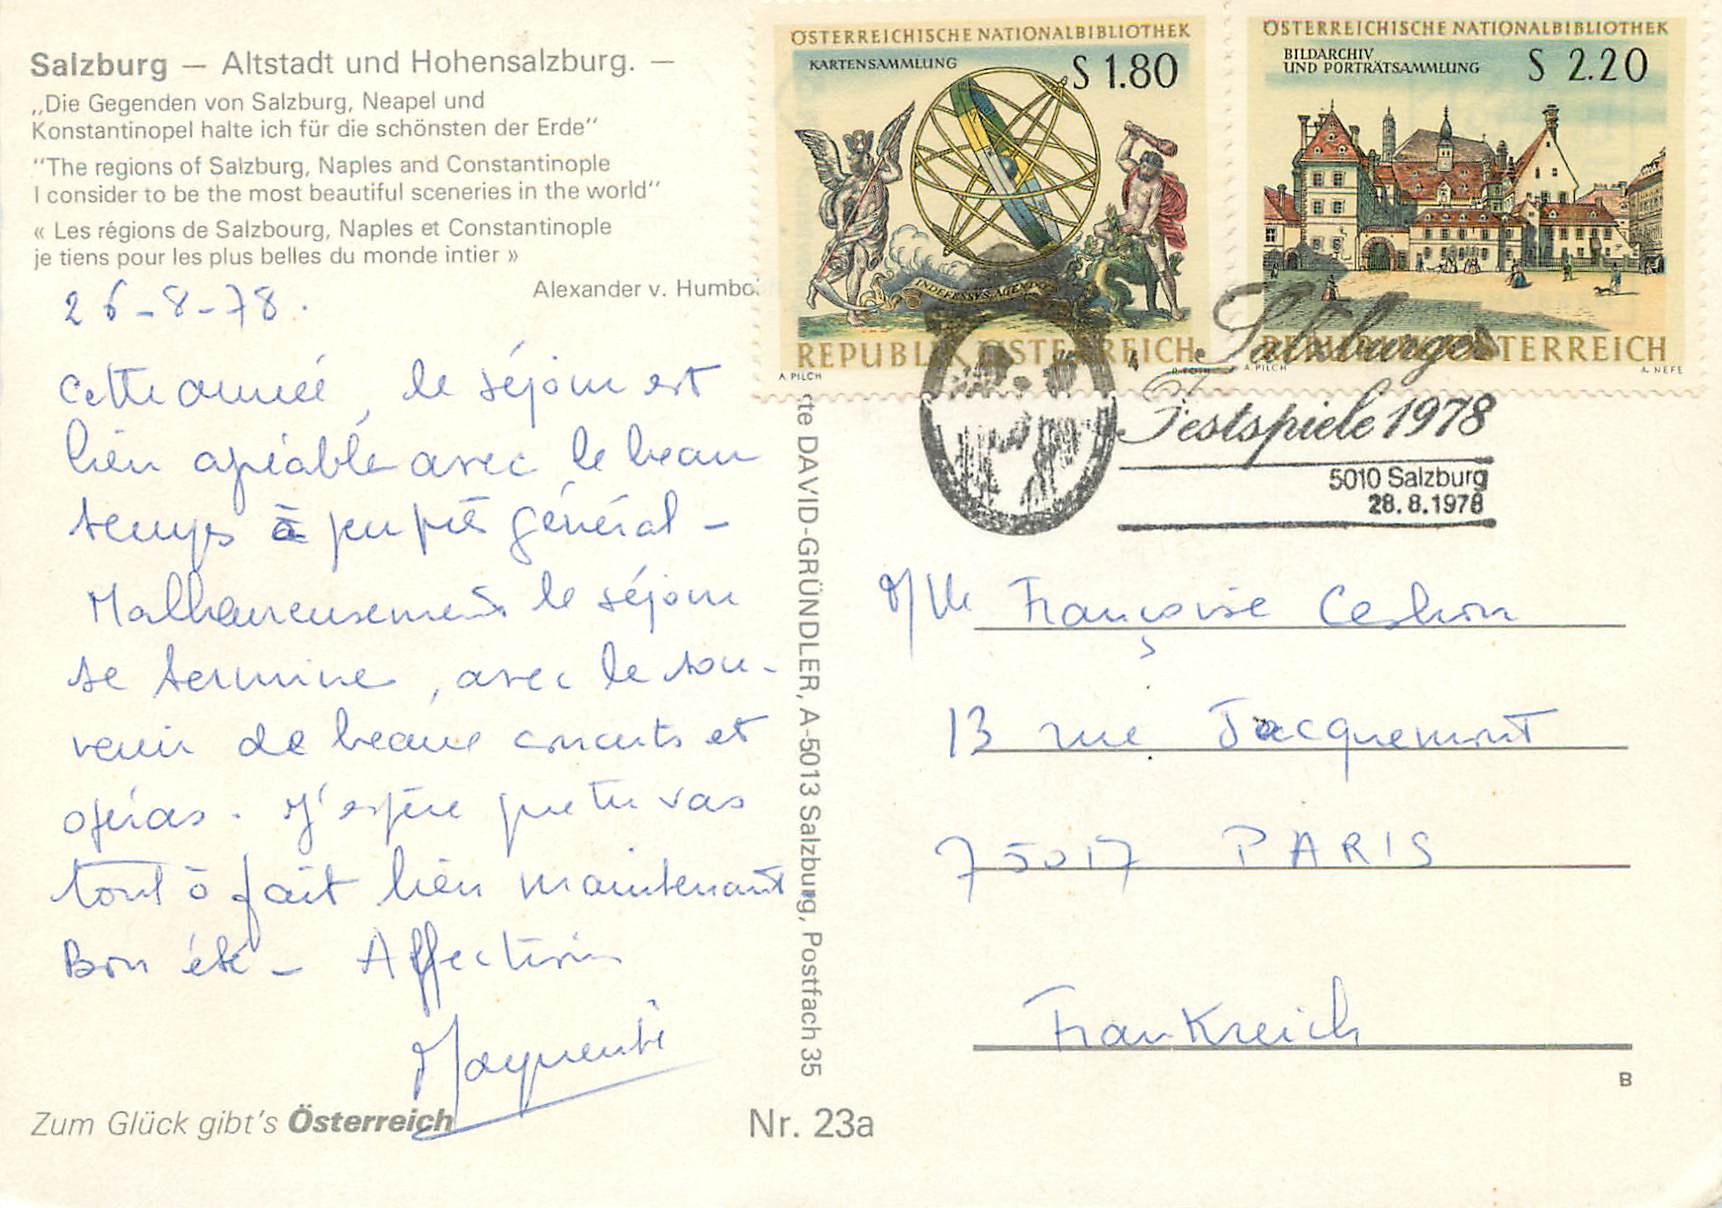 Salzburg — Altstadt und Hohensalzburg. —
„Die Gegenden von Salzburg, Neapel und
Konstantinopel halte ich für die schönsten der Erde“
“The regions of Salzburg, Naples and Constantinople
I consider to be the most beautiful sceneries in the world”
« Les régions de Salzbourg, Naples et Constantinople
je tiens pour les plus belles du monde intier »
Alexander v. Humbo
26-8-78.
Cette année, le séjour est
bien agréable avec le beau
temps à peu près général –
Malheureusement le séjour
se termine, avec le sou-
venir de beaux concerts et
opéras. J'espère que tu vas
tout à fait bien maintenant
Bon été – Affection
Marguerite
Zum Glück gibt's Österreich
Nr. 23a
rte DAVID-GRÜNDLER, A-5013 Salzburg, Postfach 35
ÖSTERREICHISCHE NATIONALBIBLIOTHEK
KARTENSAMMLUNG
S 1.80
INDEFESSVS AGENDO
REPUBLIK ÖSTERREICH
A. PILCH
R. TOTH
ÖSTERREICHISCHE NATIONALBIBLIOTHEK
BILDARCHIV
UND PORTRÄTSAMMLUNG
S 2.20
REPUBLIK ÖSTERREICH
A. PILCH
A. NEFE
Salzburger
Festspiele 1978
5010 Salzburg
28.8.1978
Mlle Françoise
13 rue Jacquemont
75017 PARIS
Frankreich
B